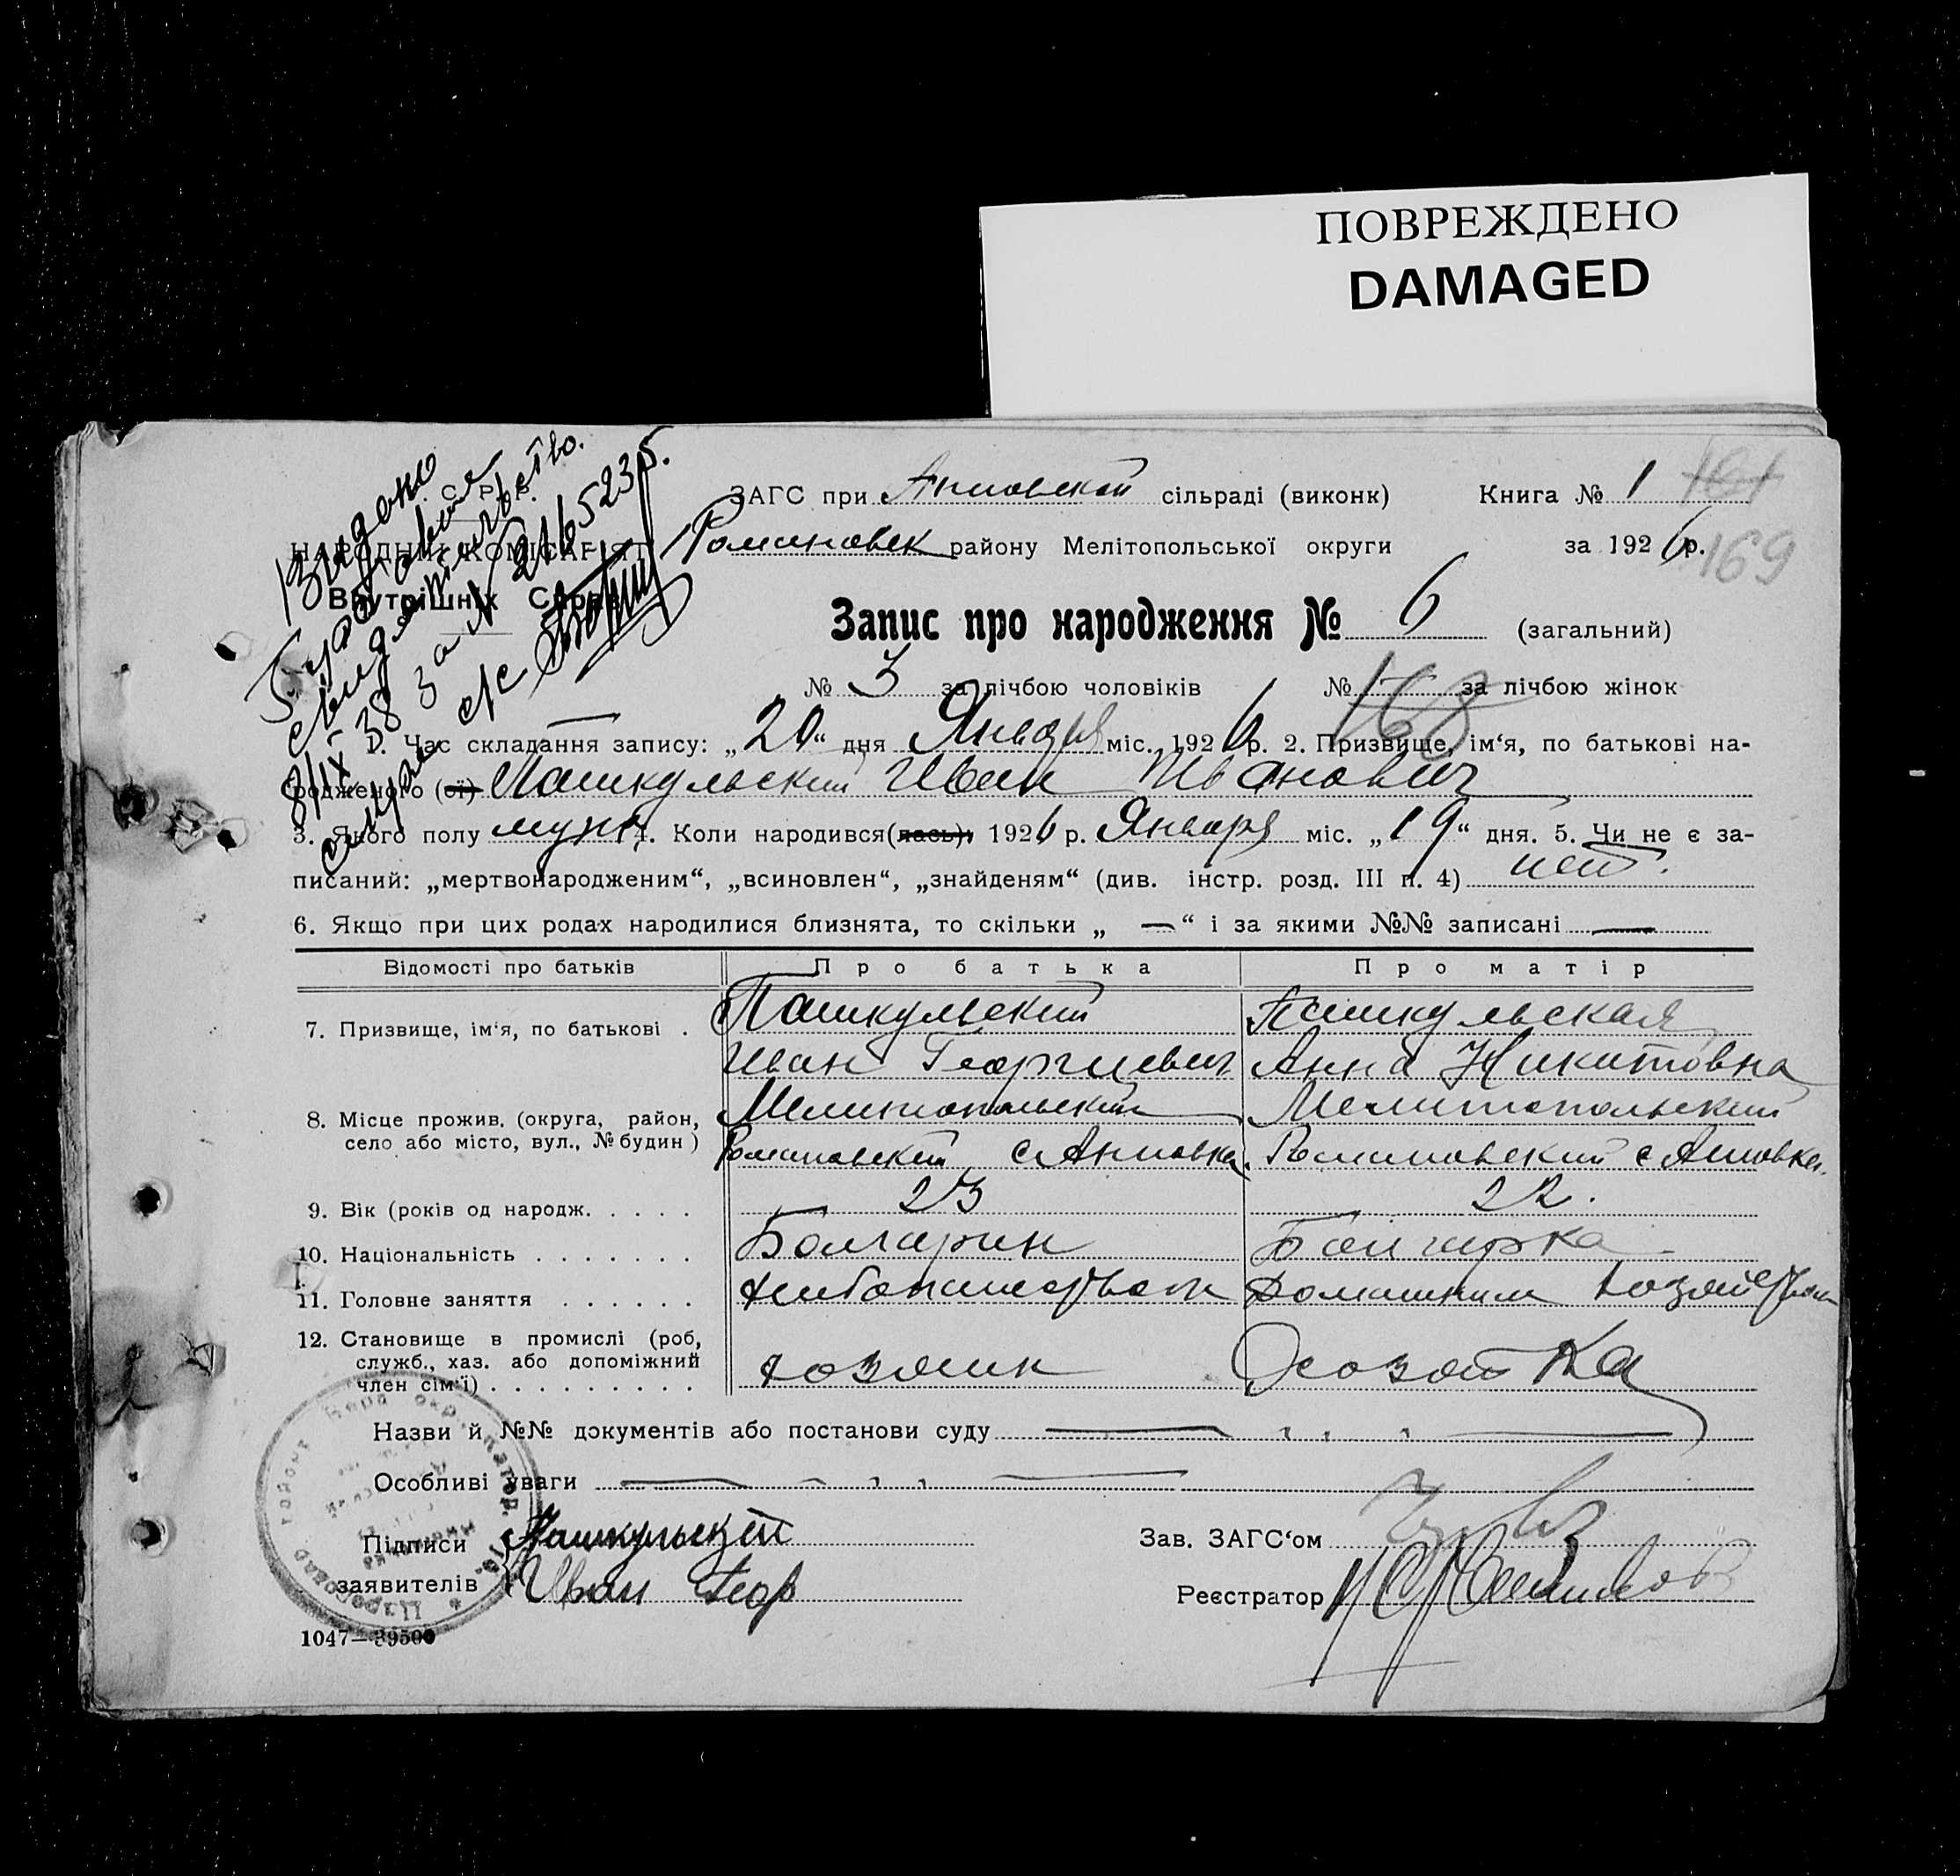 ПОВРЕЖДЕНО
DAMAGED
У. С. Р. Р.
НАРОДНИЙ КОМІСАРІЯТ
Внутрішніх Справ
Видано
свидетельство.
8/IX 38 за № 2165235.
ЗАГС при Анновской сільраді (виконк) Книга № 1 161
Романовск району Мелітопольської округи за 1926 р. 169
Запис про народження № 6 (загальний)
№ 3 за лічбою чоловіків № — за лічбою жінок
168
1. Час складання запису: „20“ дня Января міс. 1926 р. 2. Призвище, ім‘я, по батькові на-
родженого (ої) Пашкульский Иван Иванович
3. Якого полу муж 4. Коли народився(лась): 1926 р. Января міс. „19“ дня. 5. Чи не є за-
писаний: „мертвонародженим“, „всиновлен“, „знайденям“ (див. інстр. розд. III п. 4) нет.
6. Якщо при цих родах народилися близнята, то скільки „ — “ і за якими №№ записані —
Відомості про батьків Про батька Про матір
7. Призвище, ім‘я, по батькові . Пашкульский Пашкульская
Иван Георгиевич Анна Никитовна
8. Місце прожив. (округа, район, Мелитопольский Мелитопольский
село або місто, вул., № будин) Романовский с Анновка. Романовский с Анновка.
9. Вік (років од народж. . . . . . 23 22.
10. Національність . . . . . . . Болгарин Болгарка
11. Головне заняття . . . . . . Хлебопашество Домашним хозяйством
12. Становище в промислі (роб,
служб., хаз. або допоміжний хозяин Хозяйка
член сім‘ї) . . . . . . . . .
Назви й №№ документів або постанови суду —
Особливі уваги —
Підписи Пашкульский Зав. ЗАГС‘ом
заявителів Иван Геор Реєстратор
1047—39500